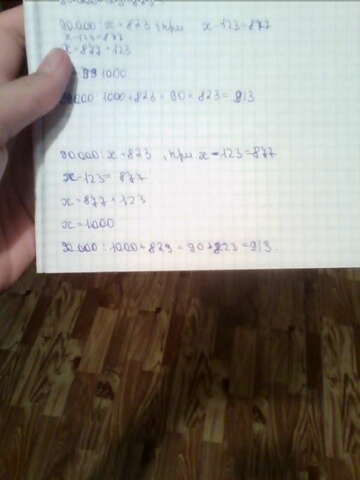 90.000 : x + 823, при x - 123 = 877
x - 123 = 877
x = 877 + 123
1000
1000 + 823 = 90 + 823 = 913
90.000 : x + 823, при x - 123 = 877
x - 123 = 877
x = 877 + 123
x = 1000
90.000 : 1000 + 823 = 90 + 823 = 913